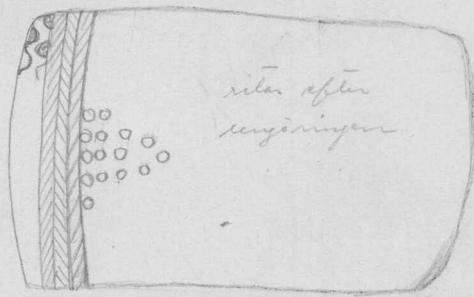 ritas efter
rengöringen